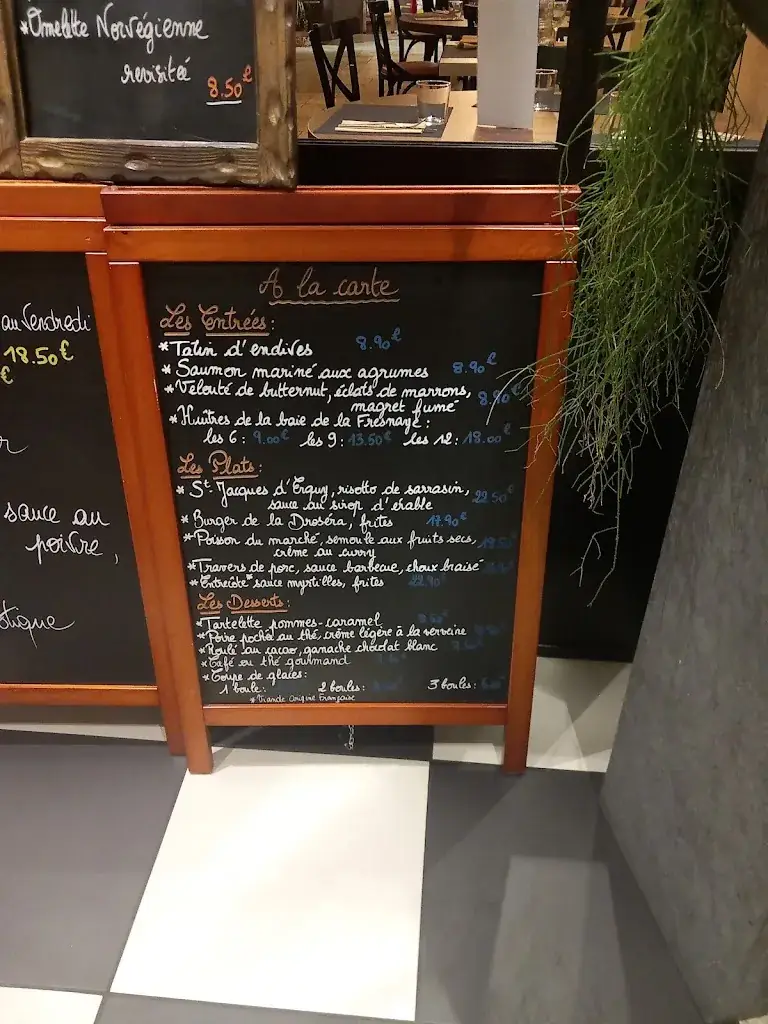 *Omelette Norvégienne
revisitée 8.50€
au Vendredi
18.50€
€
sauce au
poivre,
A la carte
Les Entrées:
*Tatin d'endives 8.90€
*Saumon mariné aux agrumes 8.90€
*Velouté de butternut, éclats de marrons, 8.90€
magret fumé
*Huîtres de la baie de la Fresnaye:
les 6: 9.00€ les 9: 13.50€ les 12: 18.00€
Les Plats:
*St Jacques d'Erquy, risotto de sarrasin, 22.50€
sauce au sirop d'érable
*Burger de la Droséra, frites 17.90€
*Poisson du marché, semoule aux fruits secs,
crème au curry
*Travers de porc, sauce barbecue, choux braisé
*Entrecôte* sauce myrtilles, frites 22.90€
Les Desserts:
*Tartelette pommes-caramel
*Poire pochée au thé, crème légère à la verveine
*Roulé au cacao, ganache chocolat blanc
*Café ou thé gourmand
*Coupe de glaces:
1 boule: 2 boules: 3 boules:
*Viande Origine Française